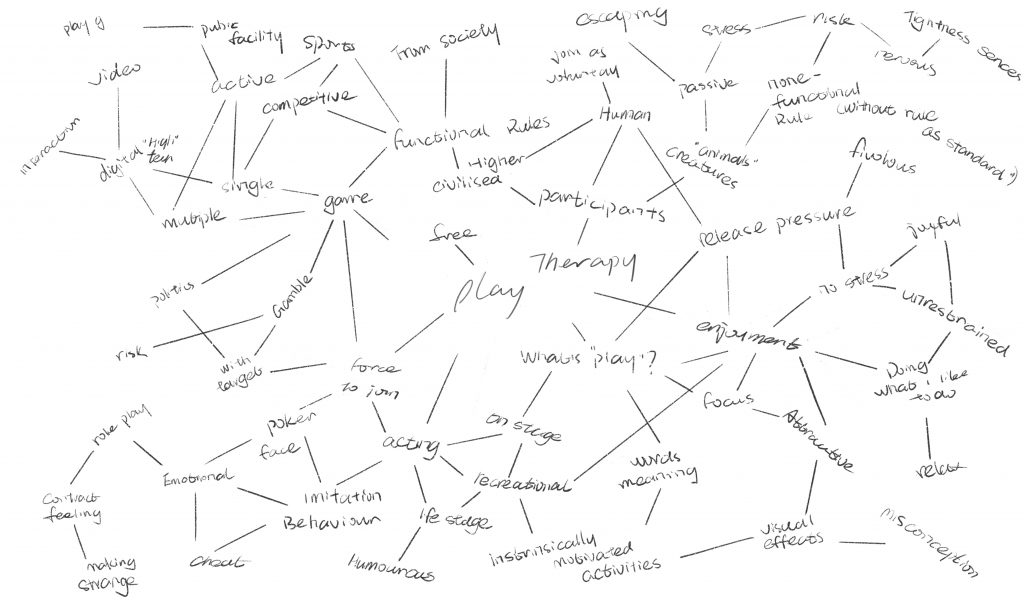 play g
pubic
facility
Sports
From society
escaping
stress
risk
Tightness sences
nervous
video
active
competitive
Join as
voluntay
passive
none-
functional
Rule (without rule
as standard")
interaction
digital "High"
tech
single
multiple
game
functional Rules
Higher
civilised
Human
"animals"
creatures
participants
fivolous
release pressure
free
Therapy
play
joyful
no stress
unrestrained
politics
Gamble
risk
with
target
force
to join
What's "play"?
enjoyment
Doing
what i like
to do
focus
Abbractive
relax
role play
poker
face
acting
on stage
words
meaning
Emotional
imitation
Behaviour
recreational
life stage
Contract
feeling
making
strange
cheat
Humourous
instrinsically
motivated
activities
visual
effects
misconception